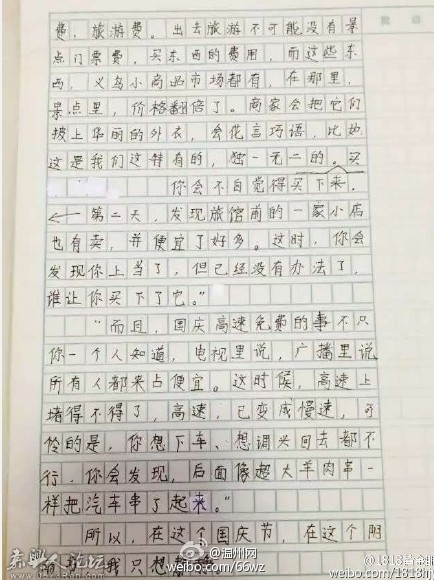 费，旅游费。出去旅游不可能没有景
点门票费，买东西的费用，而这些东
西，义乌小商品市场都有，在那里，
景点里，价格翻倍了。商家会把它们
披上华丽的外衣，会花言巧语，比如
这是我们这特有的，独一无二的。买
你会不自觉得买下来.
第二天，发现旅馆前的一家小店
也有卖，并便宜了好多。这时，你会
发现你上当了，但已经没有办法了，
谁让你买下了它。”
“而且，国庆高速免费的事不只
你一个人知道，电视里说，广播里说
所有人都来占便宜。这时候，高速上
堵得不得了，高速，已变成慢速，可
怜的是，你想下车、想调头回去都不
行，你会发现，后面像超大羊肉串一
样把汽车串了起来。”
所以，在这个国庆节，在这个阴
我只想
@温州网
weibo.com/66wz
@1818黄金眼
weibo.com/1818hj